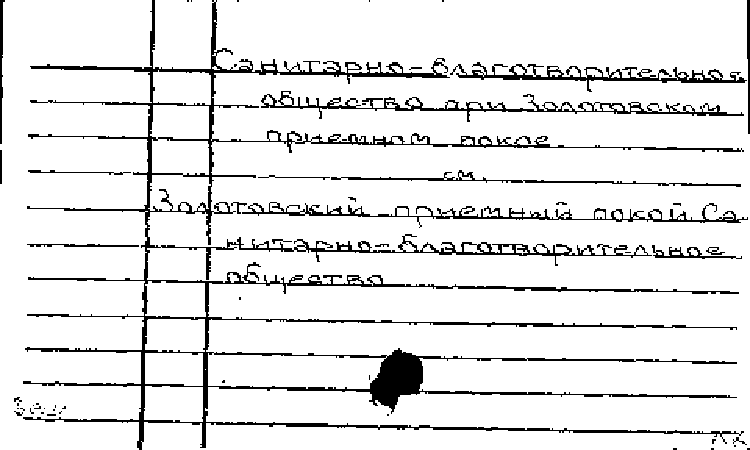 Санитарно-благотворительное
общество при Золотовском
приемном покое
см.
Золотовский приемный покой Са-
нитарно-благотворительное
общество